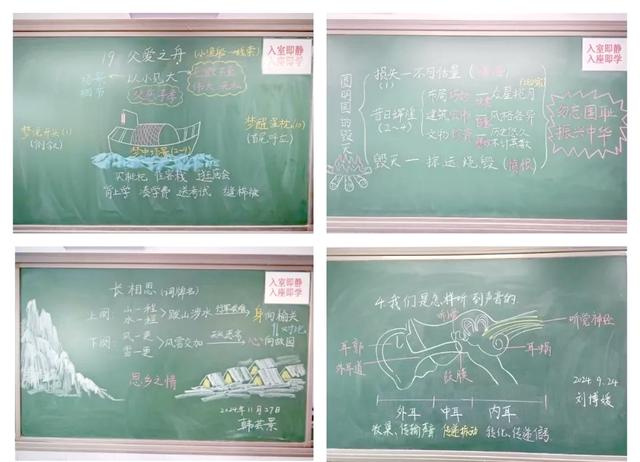 19 父爱之舟
入室即静
入座即学
场景
细节
以小见大
父爱子孝
梦境开头(1)
(倒叙)
梦中情景(2~9)
梦醒湿枕(10)
(首尾呼应)
买枇杷 住客栈 逛庙会
背上学 凑学费 送考试 缝棉被
入室即静
入座即学
圆明园的毁灭
损失—不可估量
昔日辉煌
(2~4)
布局
众星拱月
建筑
风格各异
文物
历史悠久
毁灭—掠运烧毁
勿忘国耻
振兴中华
入室即静
入座即学
长相思(词牌名)
上阕:
山一程
水一程
跋山涉水
身向榆关
对比
下阕:
风一更
雪一更
风雪交加
心向故园
思乡之情
2024年11月27日
韩芸景
4.我们是怎样听到声音的
听骨
听觉神经
耳郭
外耳道
鼓膜
耳蜗
2024.9.24
刘博媛
外耳 中耳 内耳
收集、传输声音 传递振动 转化、传递信号